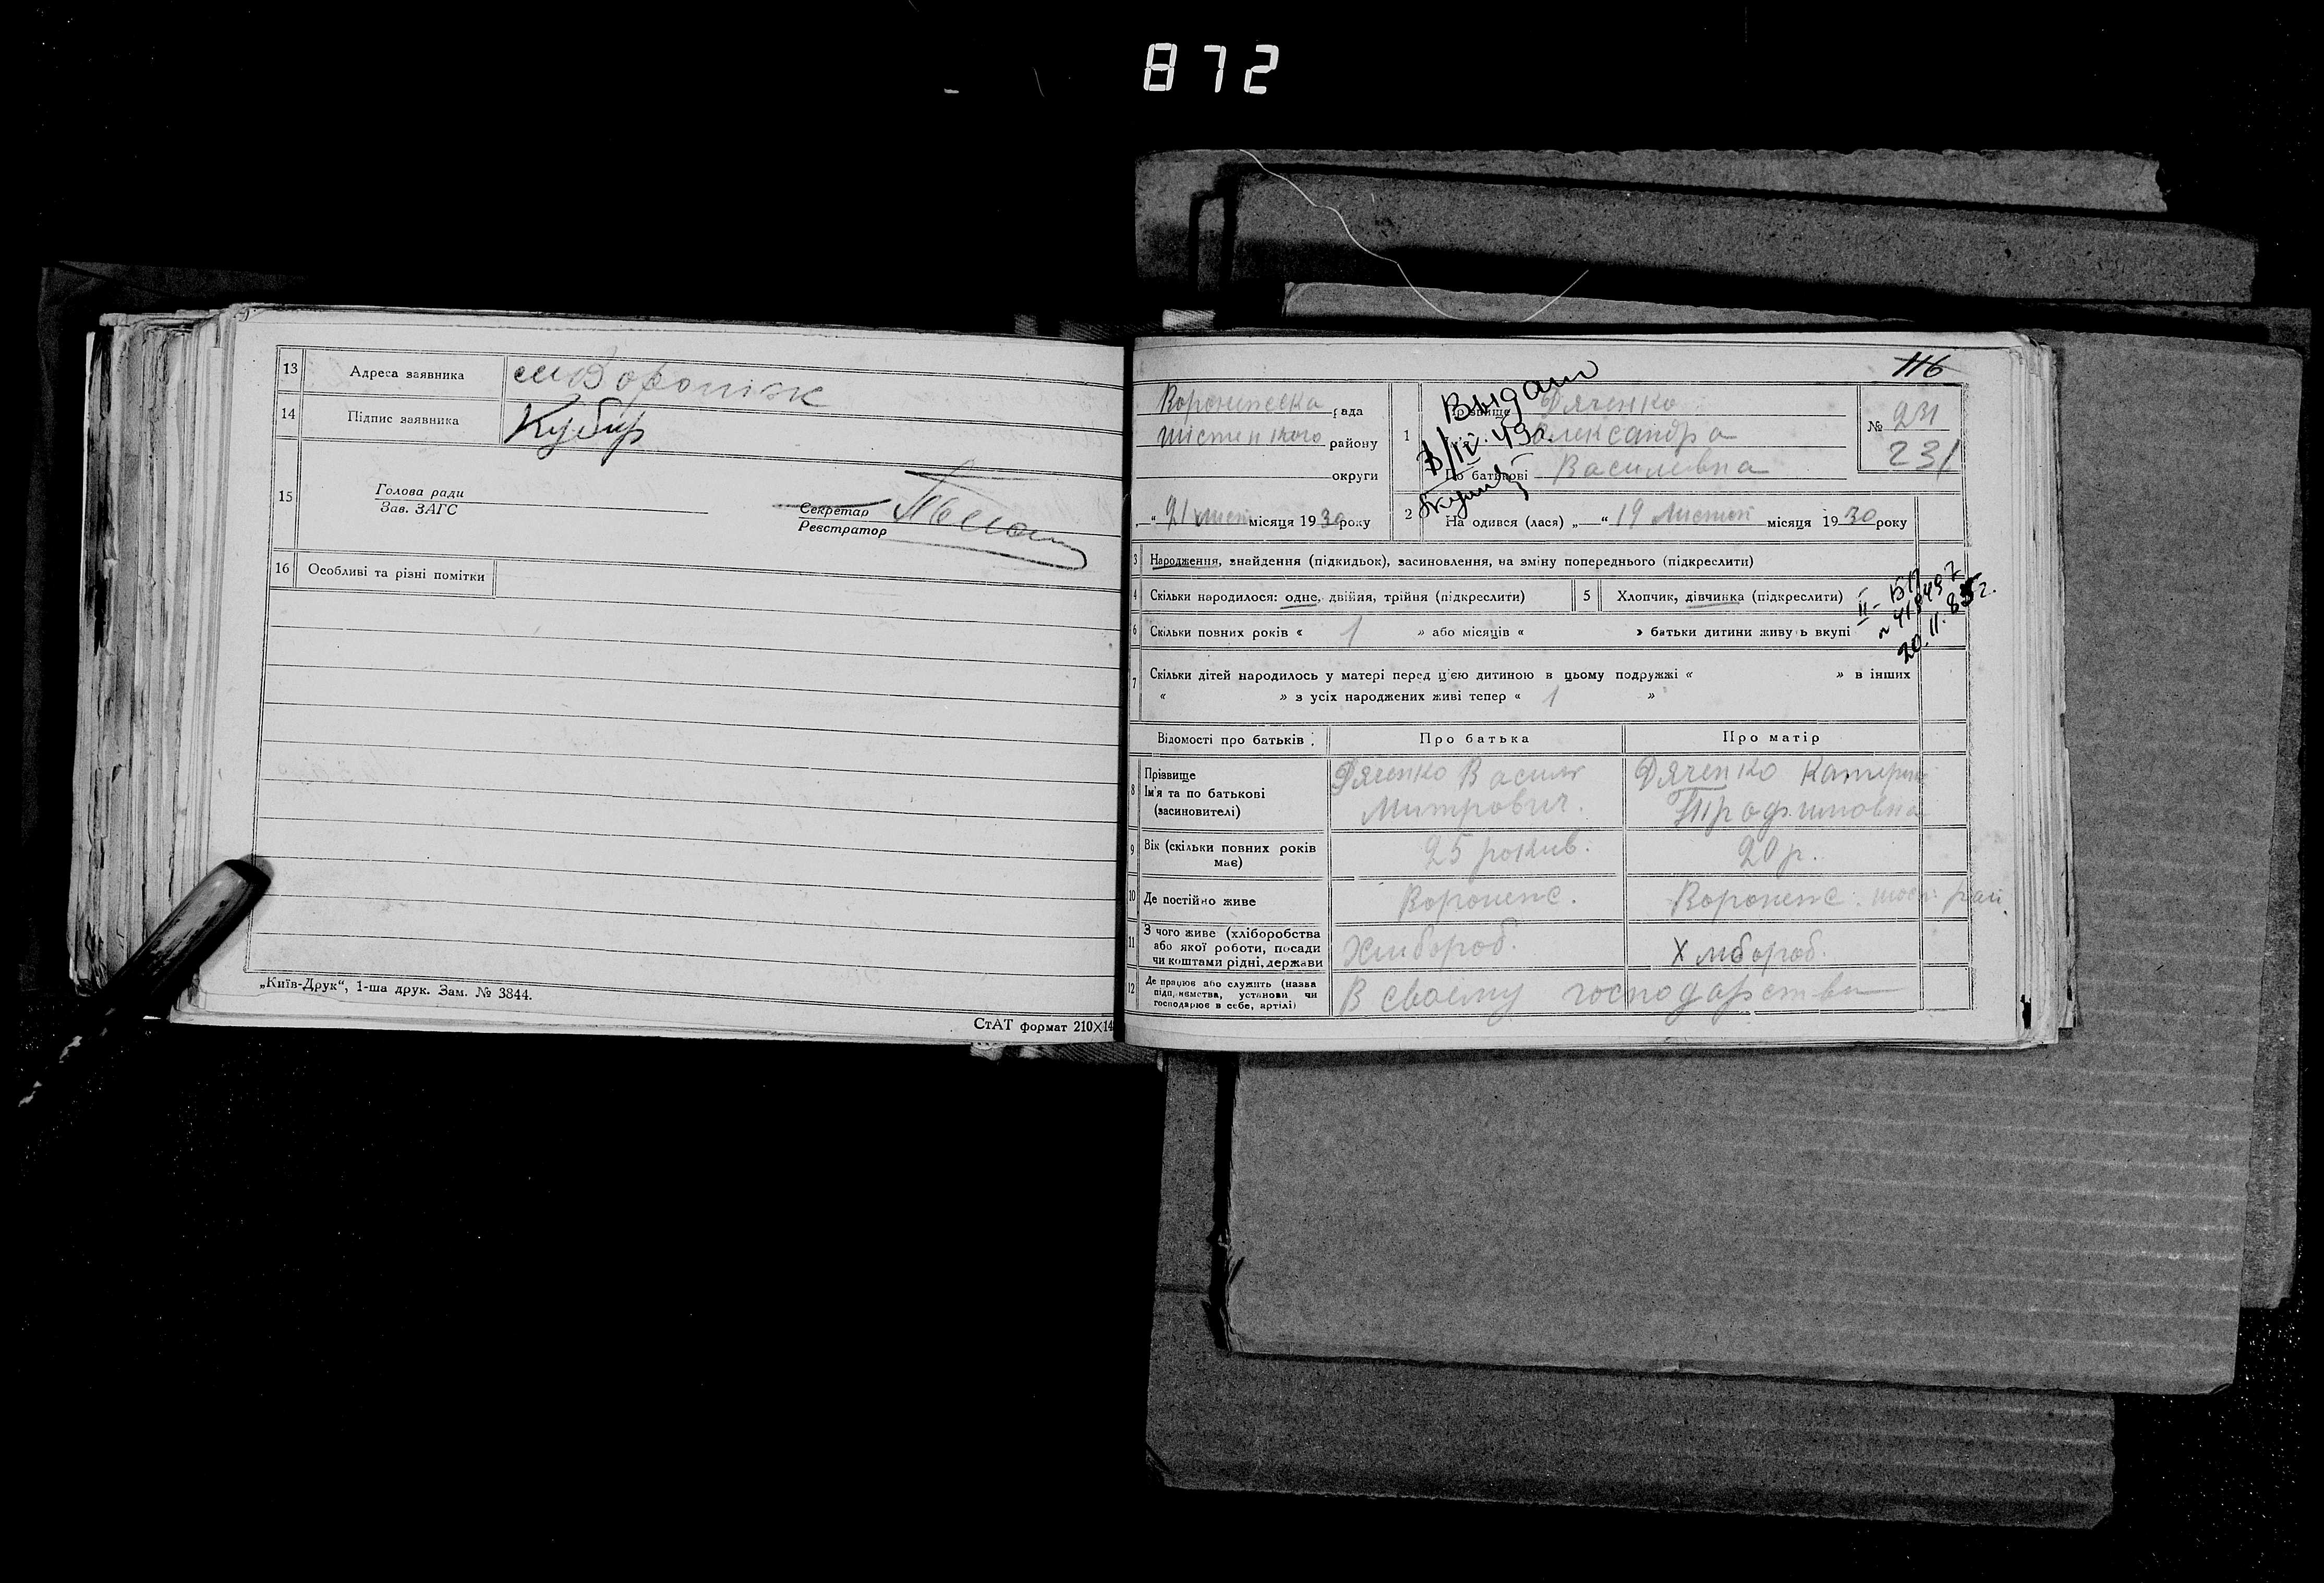 872
13 Адреса заявника см Вороніж
14 Підпис заявника Кубир
15 Голова ради
Зав. ЗАГС
Секретар
Реєстратор
16 Особливі та різні помітки
„Київ-Друк“, 1-ша друк. Зам. № 3844.
СтАТ формат 210×14
116
рада
району
округи
„ “ 21 лист місяця 1930 року
Выдано
3/IV. 49 г.
1 Прізвище Дяченко
Олександра
По батькові Василівна
№ 231
231
2 На одився (лася) „ “ 19 Листоп місяця 1930 року
3 Народження, знайдення (підкидьок), засиновлення, на зміну попереднього (підкреслити)
4 Скільки народилося: одне, двійня, трійня (підкреслити)
5 Хлопчик, дівчинка (підкреслити)
20.11.85г.
6 Скільки повних років « 1 » або місяців « » батьки дитини живу ь вкупі
7 Скільки дітей народилось у матері перед цією дитиною в цьому подружжі « » в інших
« » з усіх народжених живі тепер « 1 »
Відомості про батьків: Про батька Про матір
8 Прізвище
Ім'я та по батькові
(засиновителі)
Дяченко Василь
Митрович.
Дяченко Катерин
Трофимовна
9 Вік (скільки повних років
має)
25 рокив.
20 р.
10 Де постійно живе Воронеж. Воронеж.
11 З чого живе (хліборобства
або якої роботи, посади
чи коштами рідні, держави
Хлибороб.
Хлибороб.
12 Де працює або служить (назва
підприємства, установи чи
господарює в себе, артілі)
В своєму господарстви